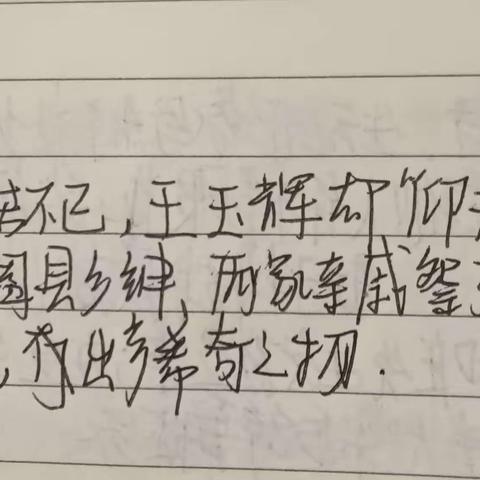 不已,王玉辉却仰
县乡绅,两家亲戚祭
出稀奇之物.